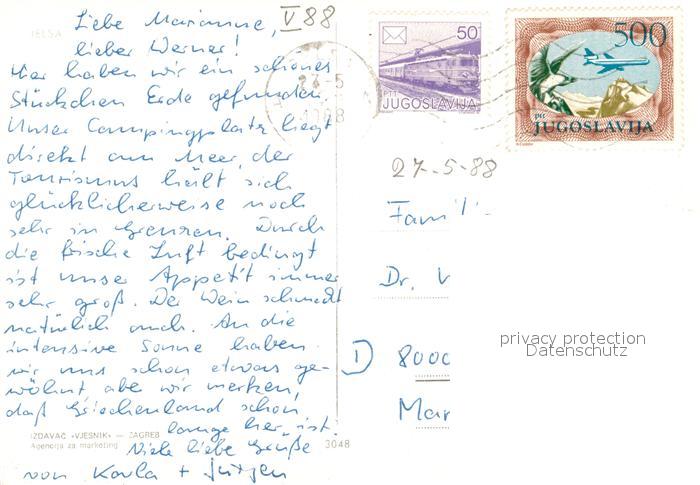 JELSA
Liebe Marianne,
lieber Werner!
Hier haben wir ein schönes
Stückchen Erde gefunden.
Unser Campingplatz liegt
direkt am Meer, der
Tourismus hält sich
glücklicherweise noch
sehr in Grenzen. Durch
die frische Luft bedingt
ist unser Appetit immer
sehr groß. Der Wein schmeckt
natürlich auch. An die
intensive Sonne haben
wir uns schon etwas ge-
wöhnt aber wir merken,
daß Griechenland schon
lange her ist.
Viele liebe Grüße
von Karla + Jürgen
IZDAVAČ »VJESNIK« — ZAGREB
Agencija za marketing
3048
V 88
27-5
1988
50
PTT
JUGOSLAVIJA
500
PTT
JUGOSLAVIJA
27.-5.-88
Famil
Dr. V
D 8000
Mar
privacy protection
Datenschutz